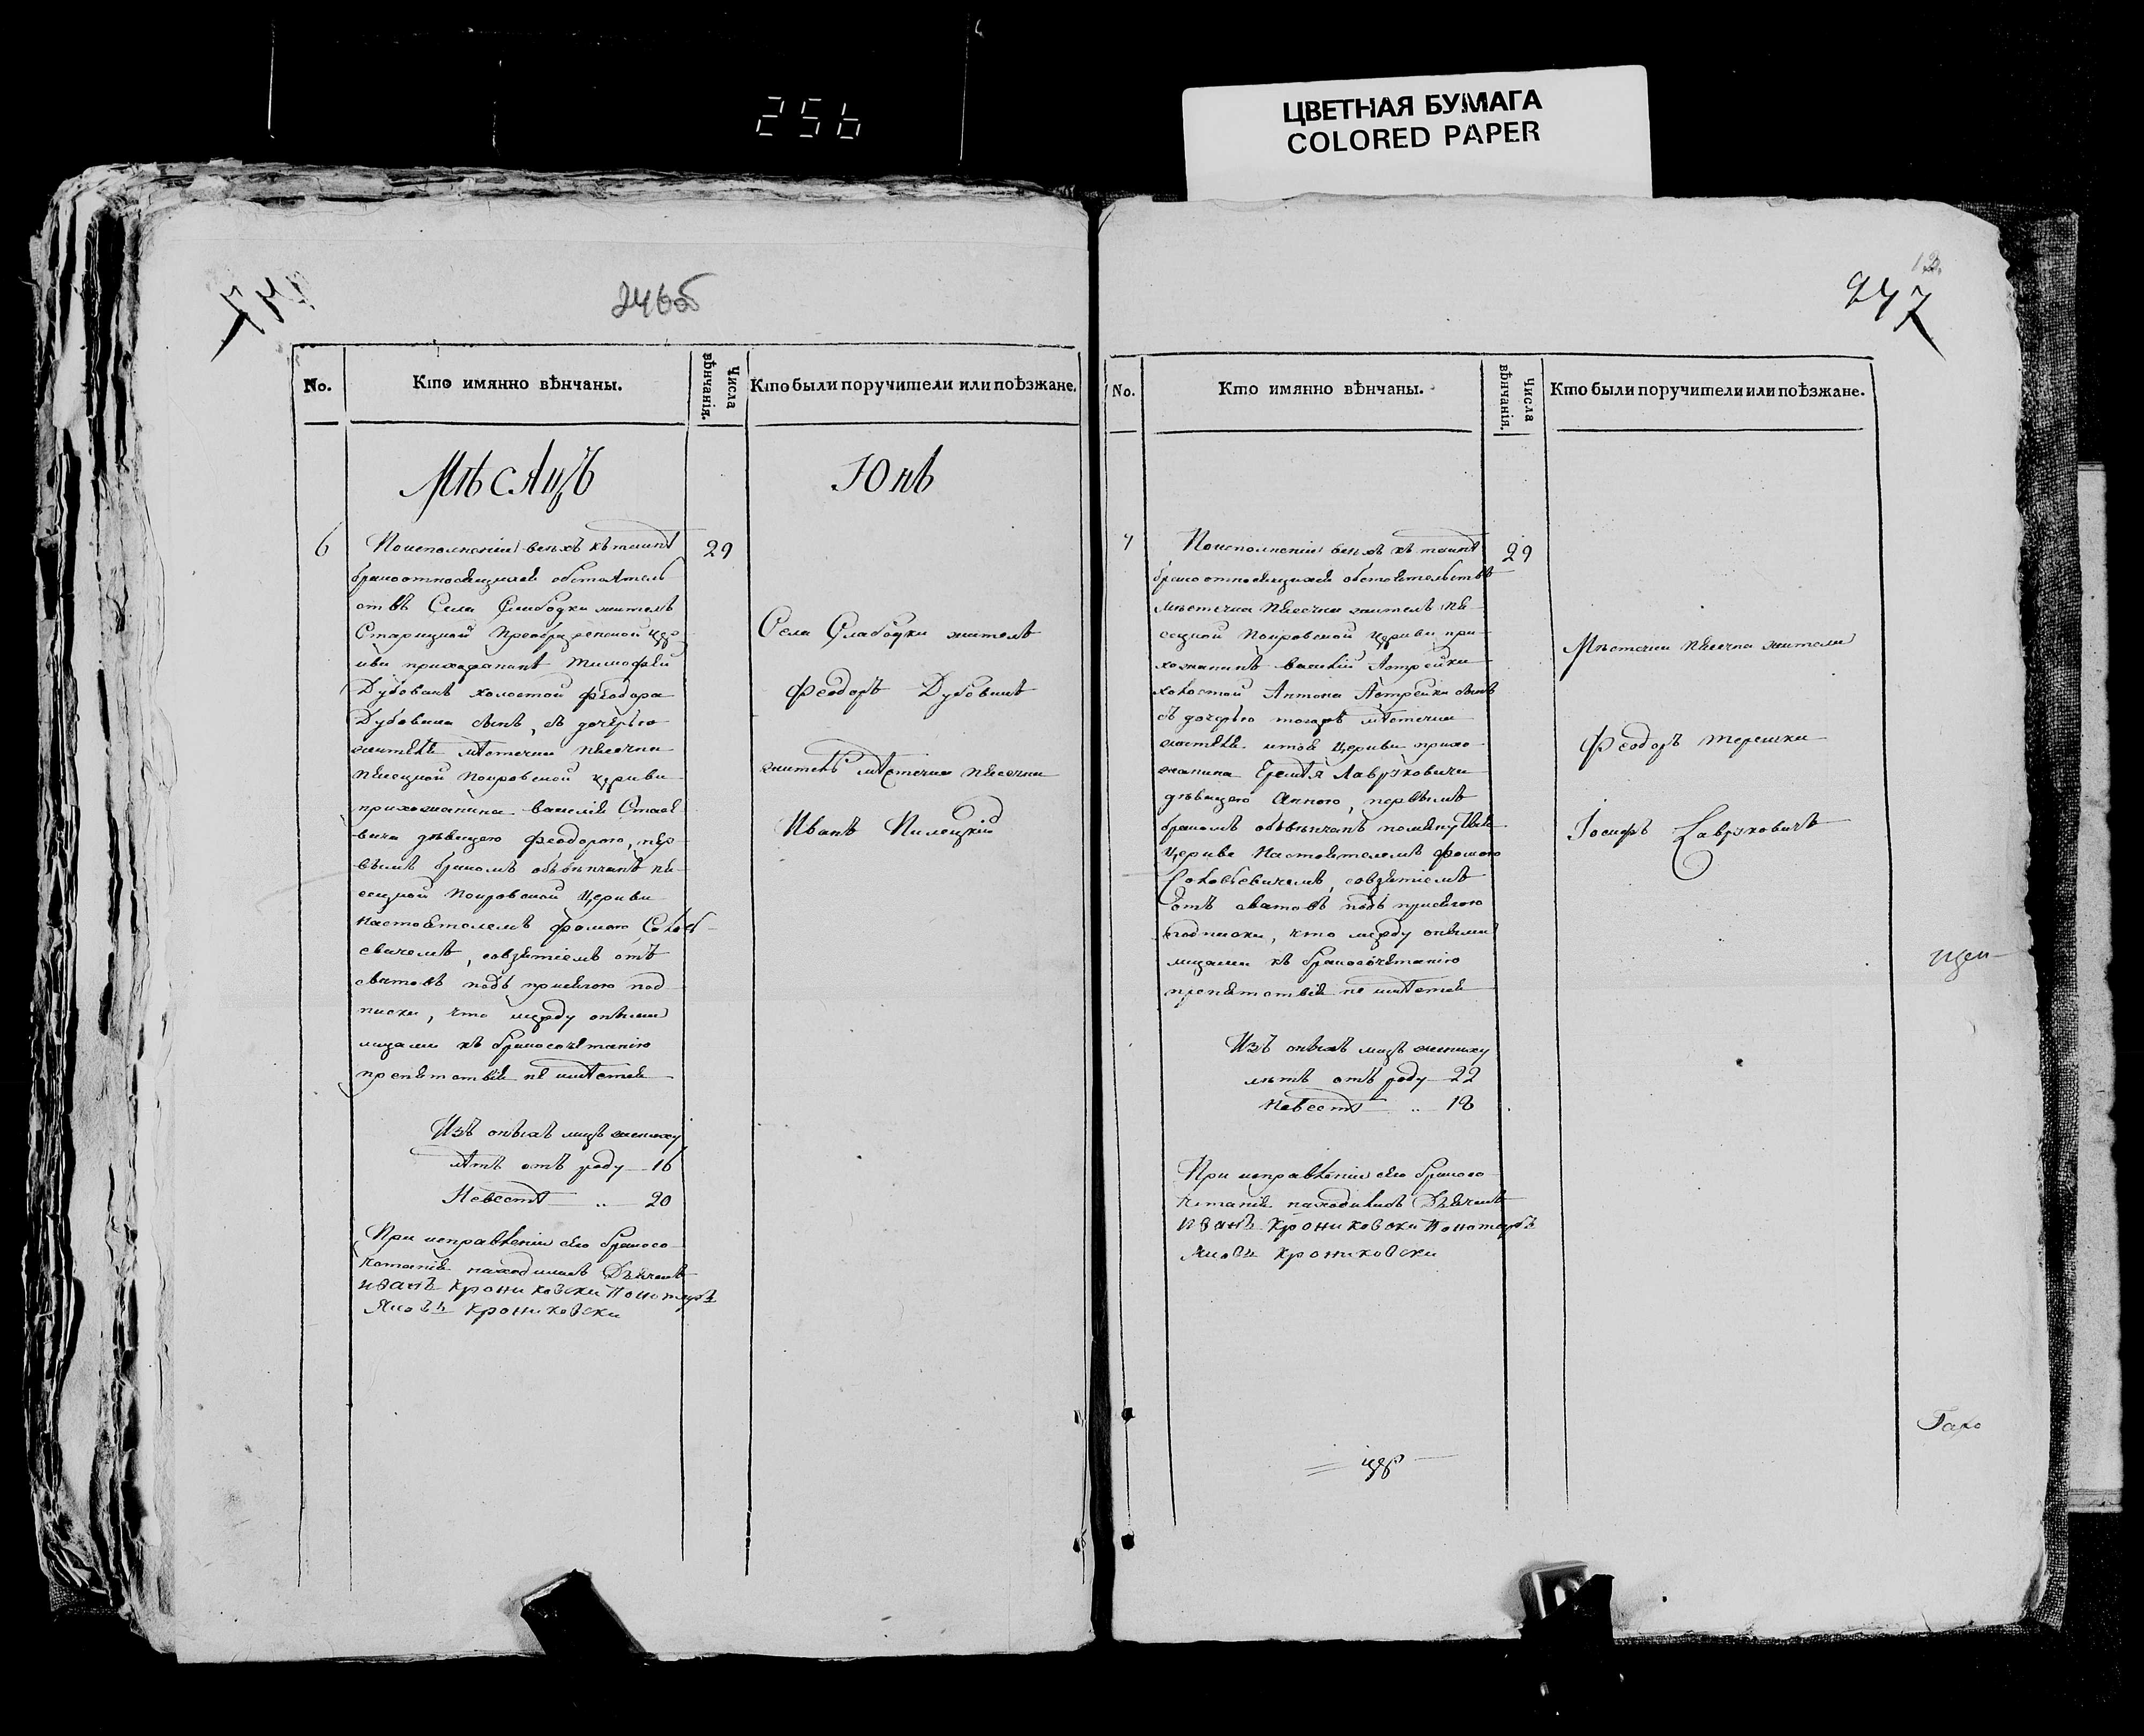 256
ЦВЕТНАЯ БУМАГА
COLORED PAPER
246об
No.
Кто имянно вѣнчаны.
Числа вѣнчанія.
Кто были поручители или поѣзжане.
Мѣсяцъ Юнь
6
29
Поисполненіи всѣхъ къ таинѣ
браноотносящихся обстоятель
ствъ Села Слабодки житель
Старицкой Преображенской цер
кви прихожанинъ Тимофей
Дубовикъ холостой Феодора
Дубовика сынъ, съ дочерью
жителя мѣстечка Песечна
Песецкой Покровской церкви
прихожанина Василія
девицею Феодорою, пер
вымъ бракомъ обвѣнчанъ Пе
сецкой Покровской Церкви
настоятелемъ Фомою
евичемъ, совзятіемъ отъ
сватовъ подъ присягою под
писки, что между оными
лицами къ бракосочетанію
препятствія не имѣется
Изъ оныхъ лицъ жениху
лѣтъ отъ роду 16
Невестѣ „ 20
При исправленіи сего бракосо
четанія находились Дьячекъ
Иванъ Крониковски Пономарь
Яковъ Крониковски
Села Слабодки житель
Феодоръ Дубовикъ
житель мѣстечка Песечна
Иванъ Пилецкій
12
247
No.
Кто имянно вѣнчаны.
Числа вѣнчанія.
Кто были поручители или поѣзжане.
7
29
Поисполненіи всѣхъ къ таинѣ
браноотносящихся обстоятельствъ
мѣстечка Песечна житель Пе
сецкой Покровской церкви при
хожанинъ Василій Астрейко
холостой Антона Астрейки сынъ
съ дочерью тогожъ мѣстечка
жителя итоя церкви прихо
жанина Лавруковича
дѣвицею Анною, первымъ
бракомъ обвѣнчанъ помянутыя
Церкви Настоятелемъ Фомою
совзятіемъ
отъ сватовъ подъ присягою
подписки, что между оными
лицами къ бракосочетанію
препятствія не имѣется
Изъ оныхъ лицъ жениху
лѣтъ отъ роду 22
Невестѣ „ 18
При исправленіи сего бракосо
четанія находились Дьячекъ
Иванъ Крониковски Пономарь
Яковъ Крониковски
Мѣстечка Песечна жители
Феодоръ Терешки
Іосифъ Лавруковичъ